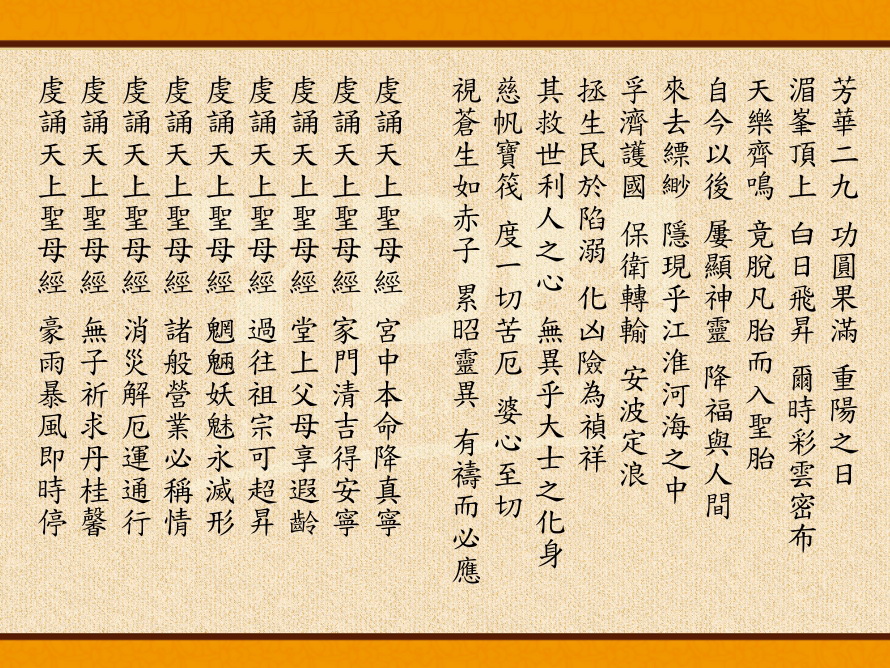 芳華二九　功圓果滿　重陽之日
湄峯頂上　白日飛昇　爾時彩雲密布
天樂齊鳴　竟脫凡胎而入聖胎
自今以後　屢顯神靈　降福與人間
來去縹緲　隱現乎江淮河海之中
孚濟護國　保衛轉輸　安波定浪
拯生民於陷溺　化凶險為禎祥
其救世利人之心　無異乎大士之化身
慈帆寶筏　度一切苦厄　婆心至切
視蒼生如赤子　累昭靈異　有禱而必應
虔誦天上聖母經　宮中本命降真寧
虔誦天上聖母經　家門清吉得安寧
虔誦天上聖母經　堂上父母享遐齡
虔誦天上聖母經　過往祖宗可超昇
虔誦天上聖母經　魍魎妖魅永滅形
虔誦天上聖母經　諸般營業必稱情
虔誦天上聖母經　消災解厄運通行
虔誦天上聖母經　無子祈求丹桂馨
虔誦天上聖母經　豪雨暴風即時停